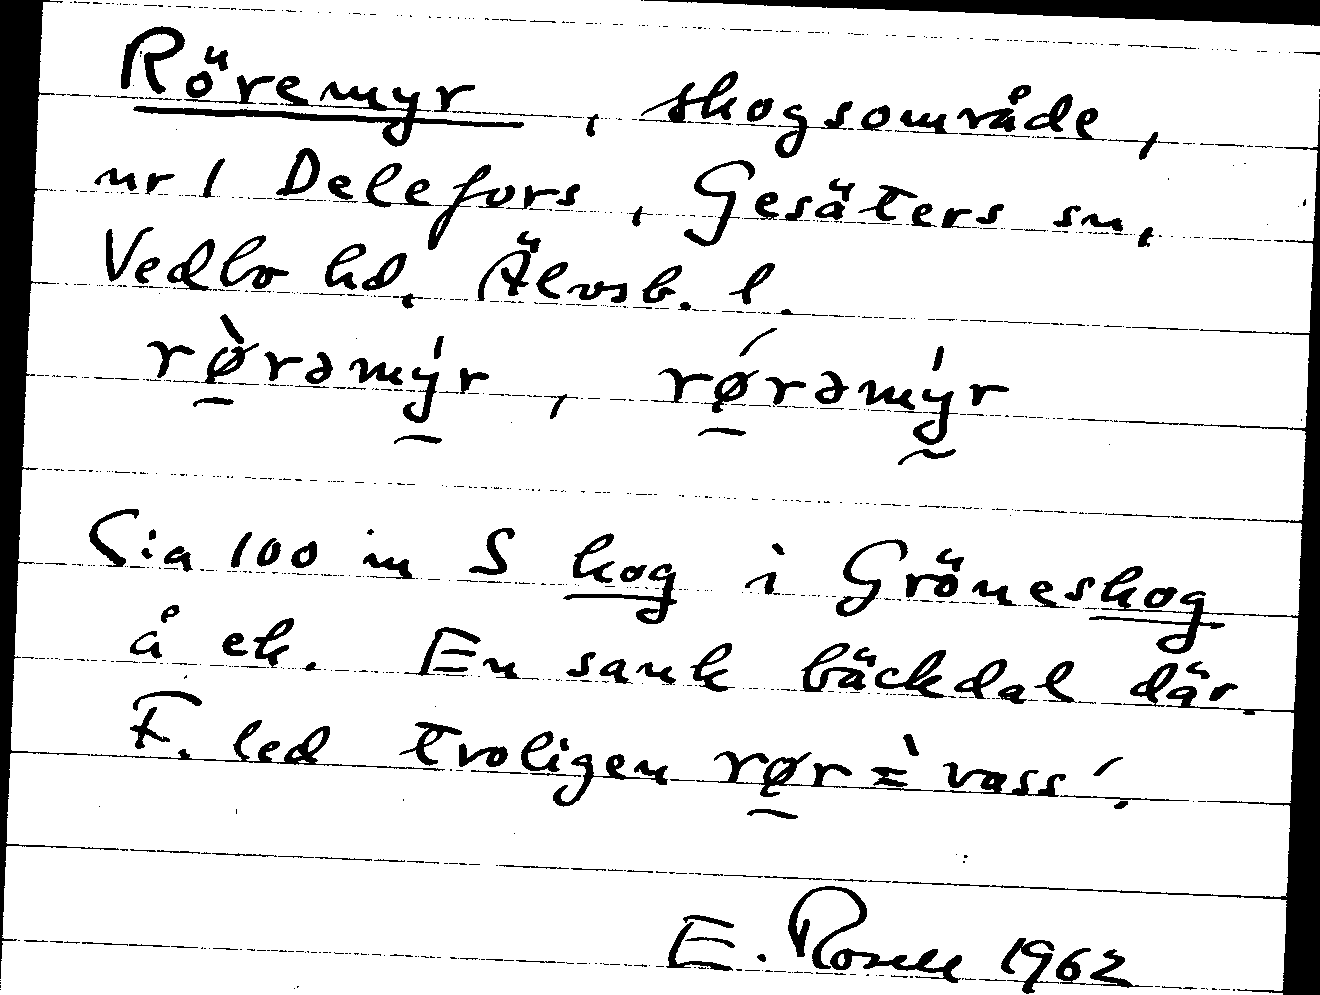 Röremyr, skogsområde,
nr 1 Delefors, Gesäters sn,
Vedbo hd, Älvsb. l.
rø̀rəmy̍r, rǿrəmy̍r
C:a 100 m S kog i Gröneskog
å ek. En sank bäckdal där.
F. led troligen rør = `vass´.
E. Rosell 1962